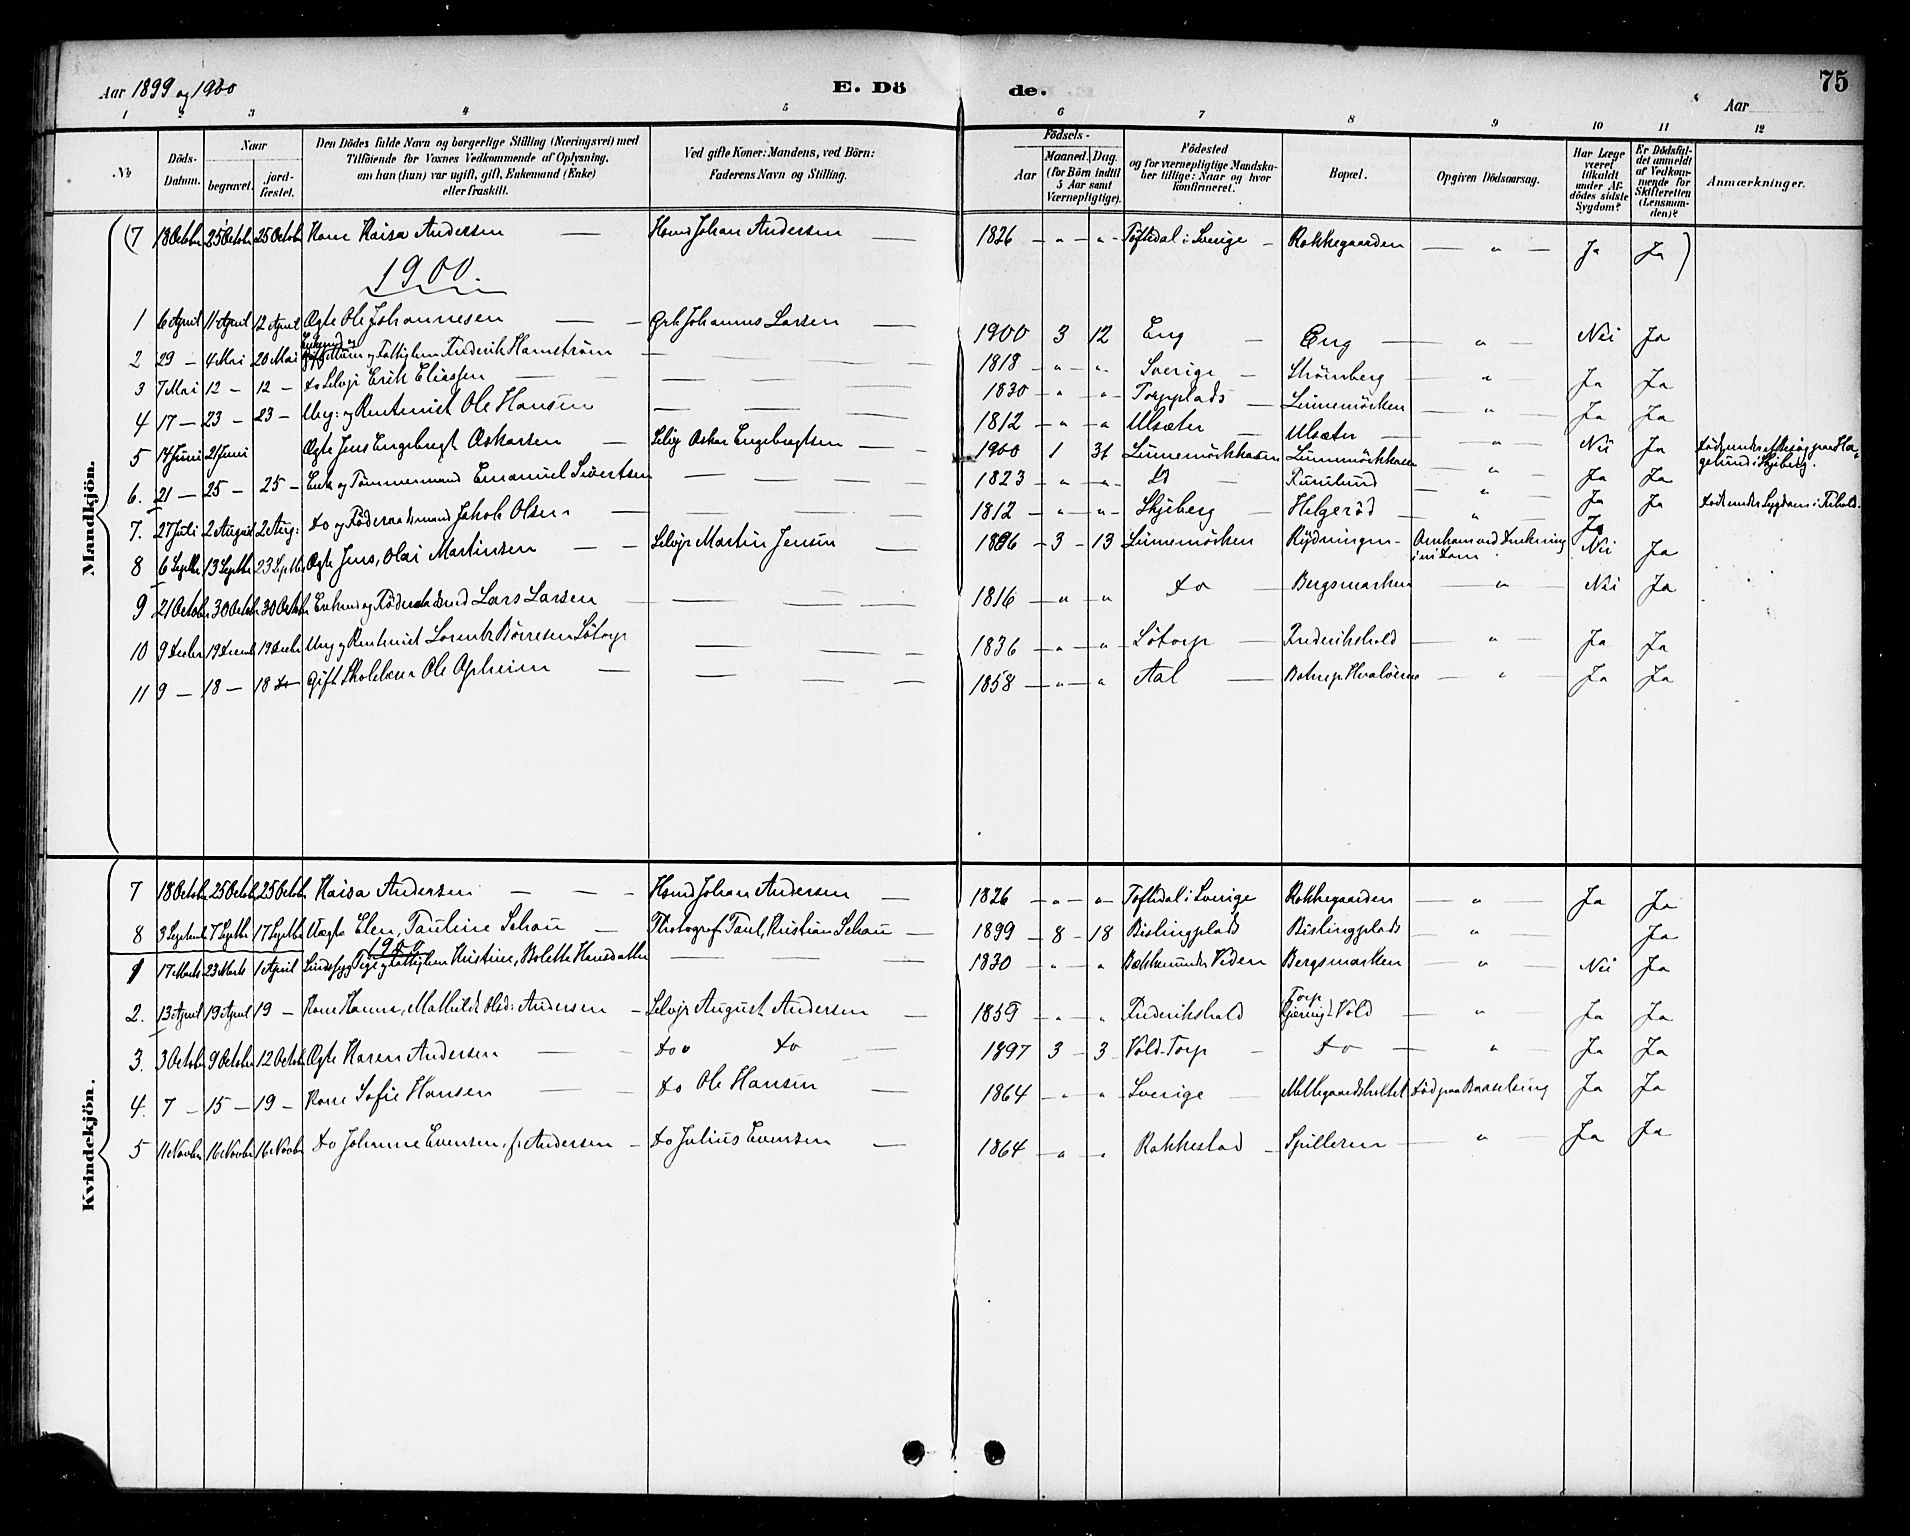 Aar 1899 og 1900 E. Dö de. 75
Aar
1 2 3 4 5 6 7 8 9 10 11 12
No Döds-Datum. Naar begravet. jordfæstet. Den Dödes fulde Navn og borgerlige Stilling (Næringsvei) med Tilföiende for Voxnes Vedkommende af Oplysning, om han (hun) var ugift, gift, Enkemand (Enke) eller fraskilt. Ved gifte Koner: Mandens, ved Börn: Faderens Navn og Stilling. Födsels- Aar Maaned. Dag. (for Börn indtil 5 Aar samt Værnepligtige). Födested og for værnepligtige Mandskaber tillige: Naar og hvor konfirmeret. Bopæl. Opgiven Dödsaarsag. Har Læge været tilkaldt under Afdödes sidste Sygdom? Er Dödsfaldet anmeldt af Vedkommende for Skifteretten (Lensmanden)? Anmærkninger.
Mandkjön.
(7 18 Octobr 25 Octobr 25 Octobr Kone Kaisa Andersen — Hsmd Johan Andersen — 1826 - „ - „ - Töftedal i Sverige - Rokkegaarden — „ — Ja Ja )
1900.
1 6 April 11 April 12 April Ægte Ole Johannesen — - Grb Johannes Larsen — 1900 3 12 Eng - Eng — „ — Nei Ja
2 29 - 4 Mai 20 Mai Enkemd og Fattiglem Frederik Hamström — — — 1818 - „ - „ - Sverige — Strömberg — „ — Ja Ja
3 7 Mai 12 - 12 - do Selvejr Erik Eliassen — — — 1830 - „ - „ - Torpplads — Lunemörken — „ — Ja Ja
4 17 - 23 - 23 - Ung: og Rentenist Ole Hansen — — — 1812 - „ - „ Ulsæter — Ulsæter — „ — Nei Ja
5 14 Juni 21 Juni Ægte Jens Engebregt Oskarsen — Selvejr Oskar Engebregtsen — 1900 1 31 Lunemörkhasen Lunemörkhasen — „ — Ja Ja Död under et Besög paa Hagelund i Skjeberg.
6. 21 - 25 - 25 - Enk og Tömmermand Emanuel Sivertsen — — — 1823 - „ - „ - Furulund — „ — Ja Ja
7. 27 Juli 2 August 2 Aug: do og Föderaadsmand Jakob Olsen — — — 1812 - „ - „ - Skjeberg — Helgeröd — „ — Ja
8 6 Septbr 13 Septbr 23 Septbr Ægte Jens, Olai Martinsen — Selvejr Martin Jensen — 1896 3 - 13 Lunemörken Rydningen - Omkom ved Drukning Nei Ja
9 21 Octobr 30 Octobr 30 Octobr Enkemd og Föderaadsmd Lars Larsen — — — 1816 - „ - „ do — Bergsmarken — „ — Nei Ja
10 9 Decbr 19 Decemb 19 Decbr Ung og Rentenist Lorentz Börresen Lötorp — — — 1836 - „ - „ - Lötorp — Frederikshald — „ — Ja Ja
11 9 - 18 - 18 do Gift Skolelærer Ole Opheim — — — 1858 - „ - „ Aal — Botnep Hvalöerne — „ — Ja Ja
Kvindekjön.
7 18 Octobr 25 Octobr 25 Octobr Kaisa Andersen — — - Hsmd Johan Andersen — 1826 - „ - „ - Töftedal i Sverige Rokkegaarden — „ — Ja Ja
8 3 Septemb 7 Septbr 17 Septbr Uægte Elen, Pauline Schau — Photograf Paul, Kristian Schau — 1899 - 8 - 18 Bislingplads Bislingplads — „ — Ja
1900
1 17 Marts 23 Marts 1 April Sindssyg Pige og Fattiglem Kristine, Bolette Hansdatter — — — 1830 - „ - „ Bækkene under Veden Bergsmarken — „ — Nei Ja
2. 13 April 19 April 19 - Kone Hanne, Mathilde Olsd: Andersen - Selvejr August Andersen — 1859 - „ - „ Frederikshald Torp Vold — „ — Ja Ja
3. 3 Octobr 9 Octobr 12 Octobr Ægte Karen Andersen — — do do — 1897 3 - 3 Vold-Torp - do — „ — Ja Ja
4. 7 - 15 - 19 - Kone Sofie Hansen — — do Ole Hansen — 1864 - „ - „ Sverige — Död paa Barselseng Ja Ja
5 11 Novbr 16 Novbr 16 Novbr do Johanne Evensen, f. Andersen - do Julius Evensen — 1864 - „ - „ Rakkestad - Spilleren — „ — Ja Ja